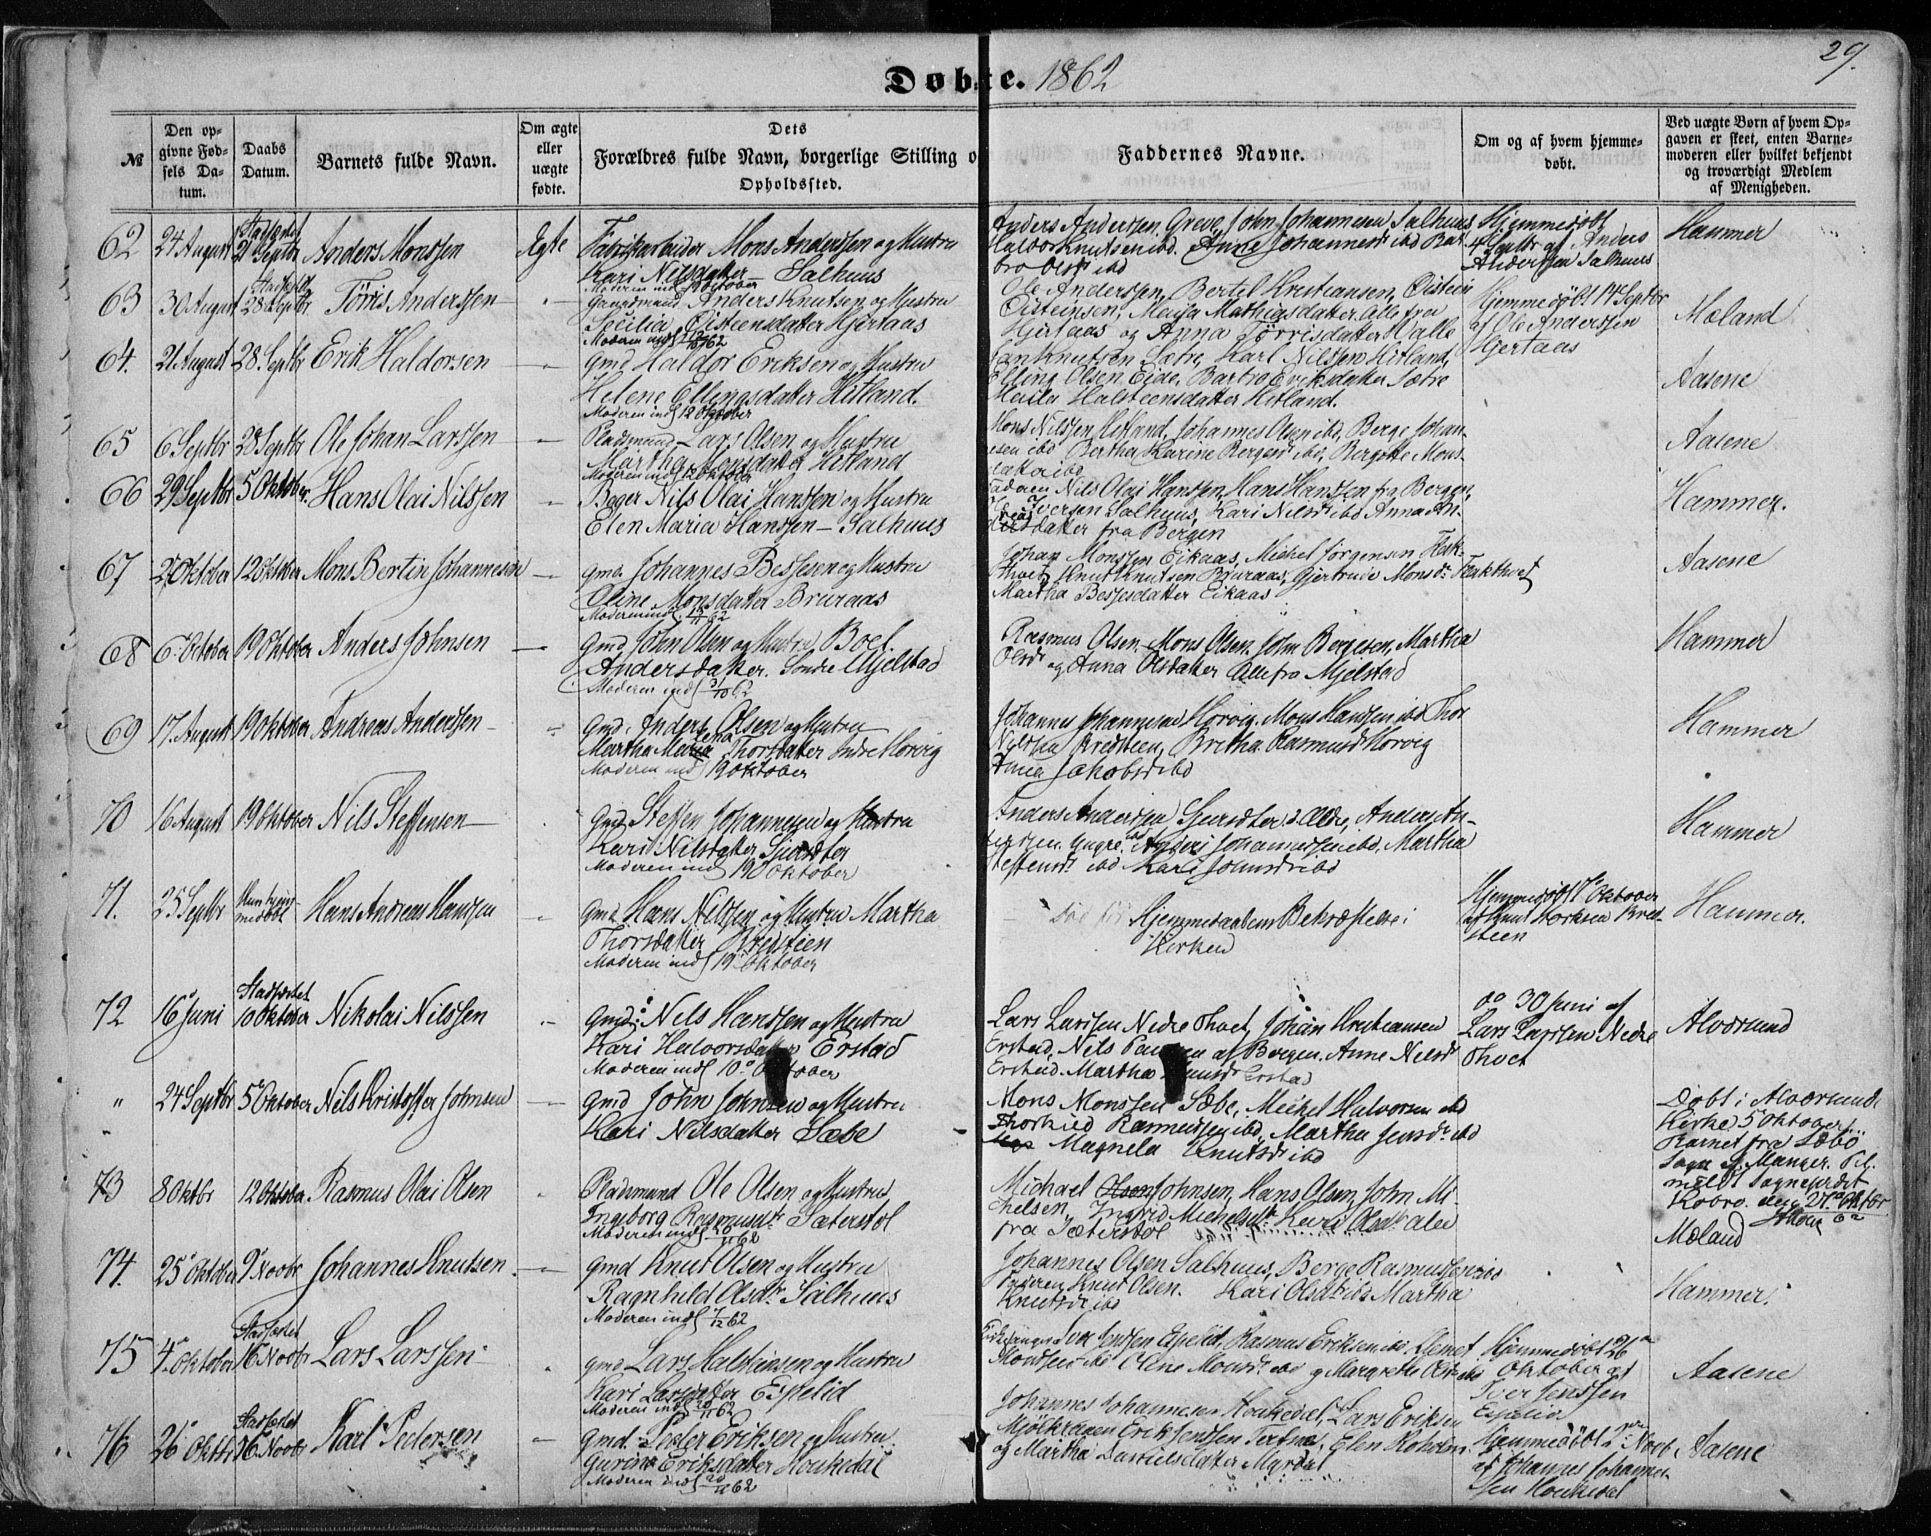 29.
Døbte. 1862
№
Den opgivne Fødsels Datum.
Daabs Datum.
Barnets fulde Navn.
Om ægte eller uægte fødte.
Dets Forældres fulde Navn, borgerlige Stilling o
Opholdssted.
Faddernes Navne.
Om og af hvem hjemmedøbt.
Ved uægte Børn af hvem Opgaven er skeet, enten Barnemoderen eller hvilket bekjendt og troværdigt Medlem af Menigheden.
62 24 August Stadfæstet 21 Septbr Anders Monssen Ægte
Fabrikarbeider Mons Anderssen og Hustru
Kari Nilsdatter – Salhuus
Anders Anderssen Greve, John Johannessen Salhuus
Halvor Knutsen ibd. Anna Johannesdr ibd Bar-
bro Olsdr ibd
Hjemmedøbt
4 Septbr af Anders
Anderssen Salhuus
Hammer
63 30 August Stadfæstet 28 Septbr Tørris Anderssen
Gaardmand Anders Knutsen og Hustru
Secilia Øisteensdatter Hjertaas
Ole Anderssen, Bertel Kristiansen, Øistein
Øisteinsen, Maila Mathiasdatter alle fra
Hjertaas og Anna Tørrisdatter Halle
Hjemmedøbt 14 Septbr
af Ole Anderssen
Hjertaas
Mæland
64. 21 August 28 Septbr Erik Haldorsen
Gmd Haldor Eriksen og Hustru
Helene Ellingsdatter Hitland.
Moderen indl 12 Oktober
Knutsen Sætre, Karl Nilssen Hitland,
Elling Olsen Eide, Barbro Eriksdatter Sætre
Maila Halsteensdatter Hitland.
Aasene
65 6 Septbr 28 Septbr Ole Johan Larssen
Pladsmand Lars Olsen og Hustru
Martha Monsdatter Hitland
Mons Nilssen Hitland, Johannes Olsen ibd, Berge Johan-
nesen ibd Bertha Karine Bergesdr ibd, Bergitte Mons-
datter ibd
Aasene
66 29 Septbr 5 Oktober Hans Olai Nilssen
Bøger Nils Olai Hanssen og Hustru
Elen Maria Hanssen – Salhuus
Faderen Nils Olai Hanssen, Hans Hanssen fra Bergen,
Iversen Salhuus, Kari Nilsdr ibd Anna An-
dreasdatter fra Bergen
Hammer.
67 2 Oktober 12 Oktober Mons Bertin Johannesen
Gmd. Johannes Bessesen og Hustru
Eline Monsdatter Bruraas
Moderen indl
Johan Monssen Eikaas, Michel Jørgensen Flak-
thvet Knut Knutsen Bruraas, Gjertrude Monsdr Flakthvet
Martha Bessesdatter Eikaas
Aasene
68 6. October 19 Oktober Anders Johnsen
Gmd John Olsen og Hustru Boel
Andersdatter. Søndre Mjelstad
Rasmus Olsen, Mons Olsen, John Bergesen, Martha
Olsdr og Anna Olsdatter Alle fra Mjelstad
Hammer
69 17. August 19 Oktober Andreas Anderssen
Gmd. Anders Olsen og Hustru
Martha Maria Thorsdatter Indre Horvig
Moderen indl 19 Oktober
Johannes Johannessen Horvig, Mons Hanssen ibd Thor
Bredsteen, Britha Rasmusdr Horvig
Anna Jakobsdr ibd
Hammer
70 16 August 19 Oktober Nils Steffensen
Gmd Steffen Johannessen og Hustru
Kari Nilsdatter
Moderen indl 19 Oktober
Anders Anderssen Ældre, Anders An-
derssen Yngre, Johannessen ibd. Martha
Steffensdr ibd Kari Johnsdr ibd
Hammer
71. 25 Septbr Kun hjemmedøbt Hans Andreas Hanssen
Gmd Hans Nilssen og Hustru Martha
Thorsdatter Bredsteen
Moderen indl 19 Oktober
Hjemmedaabens Bekræftelse i
Kirken
Hjemmedøbt 1 Oktober
af Knut Bred-
steen
Hammer.
72 16 Juni Stadfæstet 10 Oktober Nikolai Nilssen
Gmd. Nils Hanssen og Hustru
Kari Halvorsdatter Erstad
Moderen indl 10. Oktober
Lars Larssen Nedre Thvet, Johan Kristiansen
Erstad, Nils af Bergen, Anne Nilsdr
Erstad. Martha Erstad
do 30 Juni af
Lars Larssen Nedre
Thvet
Alversund
" 24 Septbr 5 Oktober Nils Kristoffer Johnsen
Gmd John Johnsen og Hustru
Kari Nilsdatter Sæbø
Mons Monssen Sæbø, Michel Halvorsen ibd
Thorkild Rasmussen ibd, Martha Jensdr ibd
Magnela Knutsdr ibd
Døbt i Alversunds
Kirke 5 Oktober.
Barnet fra Sæbø
Sogn af Manger. Til-
meldt Sognepræst
Kobro den 27. Oktbr
62
73 8 Oktbr 12 Oktober Rasmus Olai Olsen
Pladsmand Ole Olsen og Hustru
Ingeborg Rasmusdr Sæterstøl
Michael Johnsen, Hans Olsen, John Mi-
chelsen, Ingrid Michelsdr, Kari Olsdr alle
fra Sæterstøl
Mæland
74. 25 Oktober 9 Novbr Johannes Knutsen
Gmd Knut Olsen og Hustru
Ragnhild Olsdr Salhuus
Johannes Olsen Salhuus, Berge Rasmussen ibd
Faderen Knut Olsen. Kari Olsdr ibd Martha
Knutsdr ibd
Hammer.
75 4. Oktober Stadfæstet 16 Novbr Lars Larssen
Gmd Lars Halsteinsen og Hustru
Kari Larsdatter Espelid
Kirkesanger Iver Jenssen Espelid, Rasmus Eriksen ibd
Monssen ibd Eline Monsdr ibd og Margrethe
Hjemmedøbt 26
Oktober af
Iver Jenssen
Espelid
Aasene
76 26 Oktbr Stadfæstet 16 Novbr Karl Pedersen
Gmd. Peder Eriksen og Hustru
Guri Eriksdatter Houkedal
Johannes Johannessen Houkedal, Lars Eriksen
Mjølkeraaen Erik Jenssen Tertnes, Elen
og Martha Danielsdatter Myrdal
Hjemmedøbt 2 Novb.
af Johannes Johannes-
sen Houkedal
Aasene